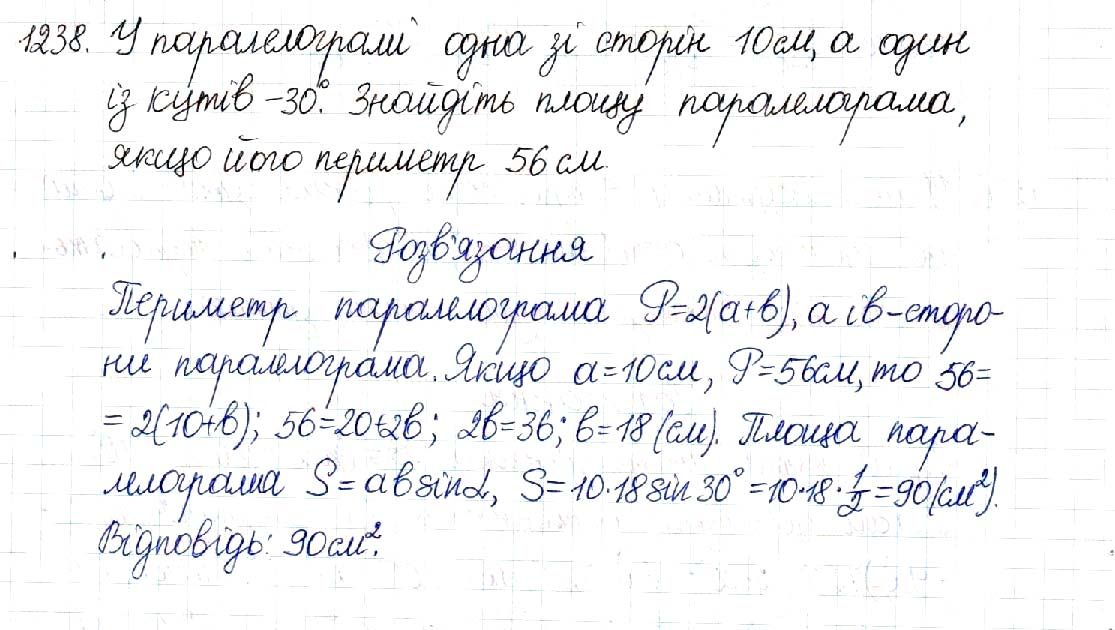 1238. У паралелограмі одна зі сторін 10см, а один
із кутів -30°. Знайдіть площу паралелограма,
якщо його периметр 56 см.
Розв'язання
Периметр паралелограма P=2(a+b), a і b-сторо-
ни паралелограма. Якщо a=10см, P=56см, то 56=
=2(10+b); 56=20+2b; 2b=36; b=18(см). Площа пара-
лелограма S=absinα, S=10·18sin30°=10·18·1/2=90(см²).
Відповідь: 90см².